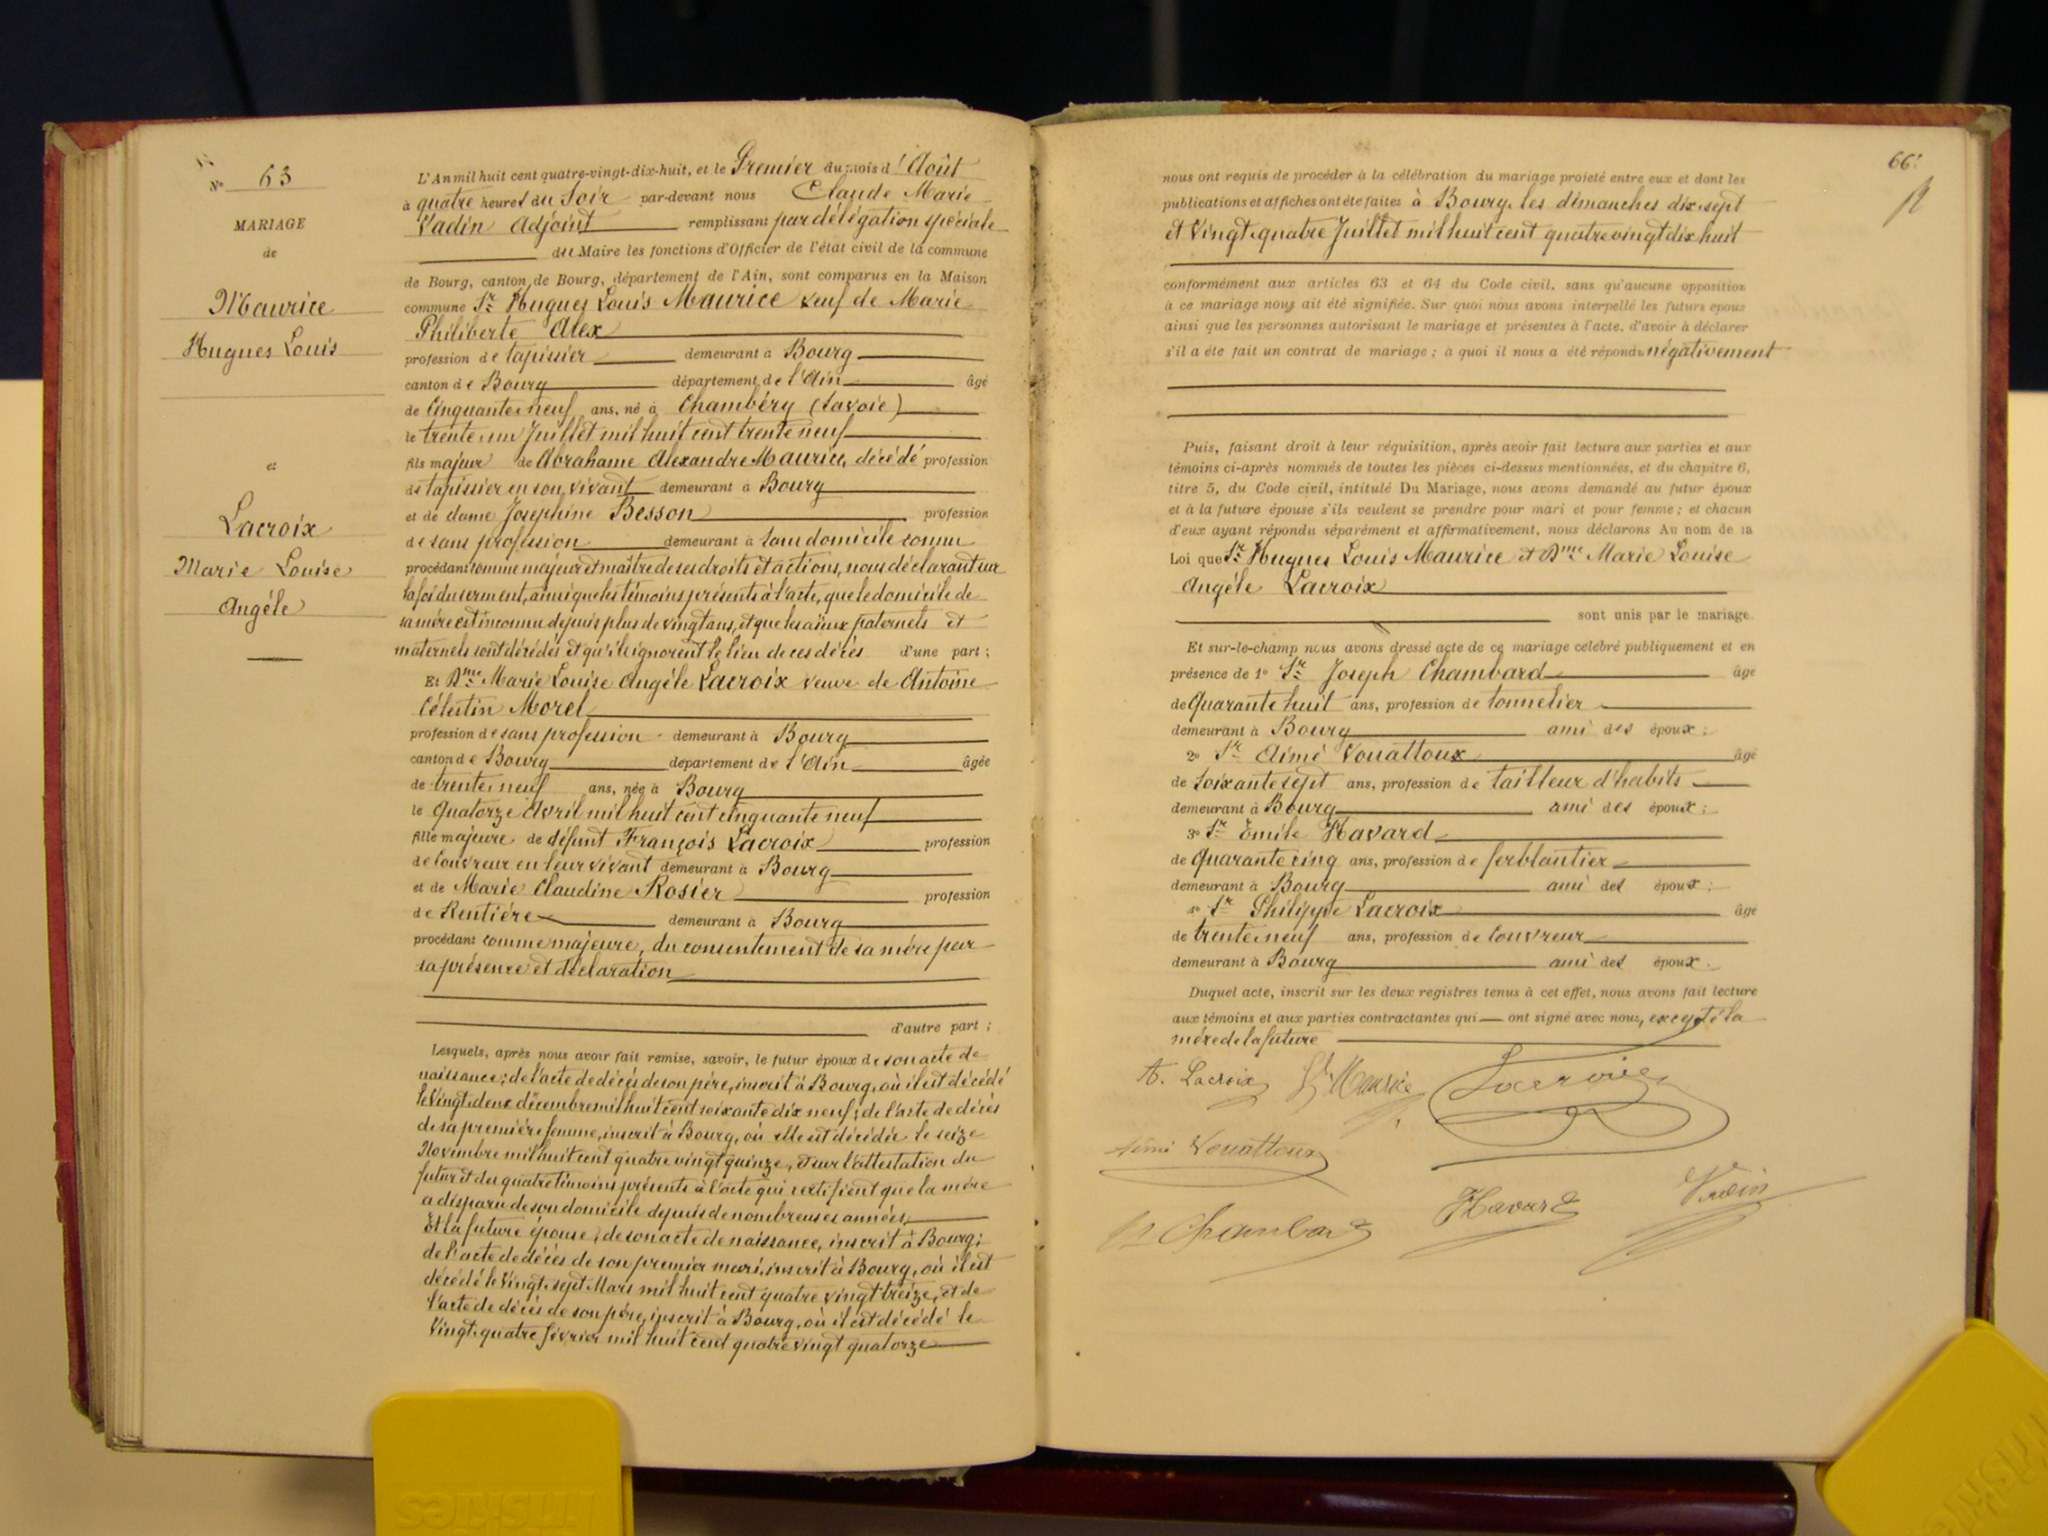 N° 63
MARIAGE
de
Maurice
Hugues Louis
et
Lacroix
Marie Louise
Angéle
L'An mil huit cent quatre-vingt-dix-huit, et le Premier du mois d'Août
à quatre heures du Soir par-devant nous Claude Marie
Vadin Adjoint remplissant par délégation spéciale
du Maire les fonctions d'Officier de l'état civil de la commune
de Bourg, canton de Bourg, département de l'Ain, sont comparus en la Maison
commune Sr Hugues Louis Maurice veuf de Marie
Philiberte Alex
profession de tapissier demeurant à Bourg
canton de Bourg département de l'Ain âgé
de Cinquante neuf ans, né à Chambéry (Savoie)
le trente un Juillet mil huit cent trente neuf
fils majeur de Abrahame Alexandre Maurice, décédé profession
de tapissier en son vivant demeurant à Bourg
et de dame Joséphine Besson profession
de sans profession demeurant à sans domicile connu
procédant comme majeur et maître de ses droits et actions, nous déclarant sur
la foi du serment, ainsi que les témoins présents à l'acte, que le domicile de
sa mère est inconnu depuis plus de vingt ans, et que les aïeux paternels et
maternels sont décédés et qu'ils ignorent le lieu de ces décès d'une part ;
Et Dme Marie Louise Angéle Lacroix veuve de Antoine
Célestin Morel
profession de sans profession demeurant à Bourg
canton de Bourg département de l'Ain âgée
de trente neuf ans, née à Bourg
le Quatorze Avril mil huit cent cinquante neuf
fille majeure de défunt François Lacroix profession
de Couvreur en leur vivant demeurant à Bourg
et de Marie Claudine Rosier profession
de Rentière demeurant à Bourg
procédant comme majeure, du consentement de sa mère par
sa présence et déclaration
d'autre part ;
Lesquels, après nous avoir fait remise, savoir, le futur époux de son acte de
naissance ; de l'acte de décès de son père, inscrit à Bourg, où il est décédé
le Vingt deux décembre mil huit cent soixante dix neuf ; de l'acte de décès
de sa première femme, inscrit à Bourg, où elle est décédée le seize
Novembre mil huit cent quatre vingt quinze, et sur l'attestation du
futur et des quatre témoins présents à l'acte qui certifient que la mère
a disparu de son domicile depuis de nombreuses années,
Et la future épouse, de son acte de naissance, inscrit à Bourg ;
de l'acte de décès de son premier mari, inscrit à Bourg, où il est
décédé le Vingt sept Mars mil huit cent quatre vingt treize, et de
l'acte de décès de son père, inscrit à Bourg, où il est décédé le
Vingt quatre février mil huit cent quatre vingt quatorze
66
nous ont requis de procéder à la célébration du mariage projeté entre eux et dont les
publications et affiches ont été faites à Bourg, les dimanches dix sept
et Vingt quatre Juillet mil huit cent quatre vingt dix huit
conformément aux articles 63 et 64 du Code civil, sans qu'aucune opposition
à ce mariage nous ait été signifiée. Sur quoi nous avons interpellé les futurs époux
ainsi que les personnes autorisant le mariage et présentes à l'acte, d'avoir à déclarer
s'il a été fait un contrat de mariage ; à quoi il nous a été répondu négativement
Puis, faisant droit à leur réquisition, après avoir fait lecture aux parties et aux
témoins ci-après nommés de toutes les pièces ci-dessus mentionnées, et du chapitre 6,
titre 5, du Code civil, intitulé Du Mariage, nous avons demandé au futur époux
et à la future épouse s'ils veulent se prendre pour mari et pour femme ; et chacun
d'eux ayant répondu séparément et affirmativement, nous déclarons Au nom de la
Loi que Sr Hugues Louis Maurice et Dme Marie Louise
Angéle Lacroix
sont unis par le mariage.
Et sur-le-champ nous avons dressé acte de ce mariage célébré publiquement et en
présence de 1° Sr Joseph Chambard âgé
de Quarante huit ans, profession de tonnelier
demeurant à Bourg ami des époux ;
2° Sr Aimé Vouattoux âgé
de Soixante sept ans, profession de tailleur d'habits
demeurant à Bourg ami des époux ;
3° Sr Emile Havard
de Quarante cinq ans, profession de ferblantier
demeurant à Bourg ami des époux ;
4° Sr Philippe Lacroix âgé
de trente neuf ans, profession de Couvreur
demeurant à Bourg ami des époux.
Duquel acte, inscrit sur les deux registres tenus à cet effet, nous avons fait lecture
aux témoins et aux parties contractantes qui ont signé avec nous, excepté la
mère de la future
A. Lacroix Maurice Lacroix
Aimé Vouattoux
Chambard Havard Vadin